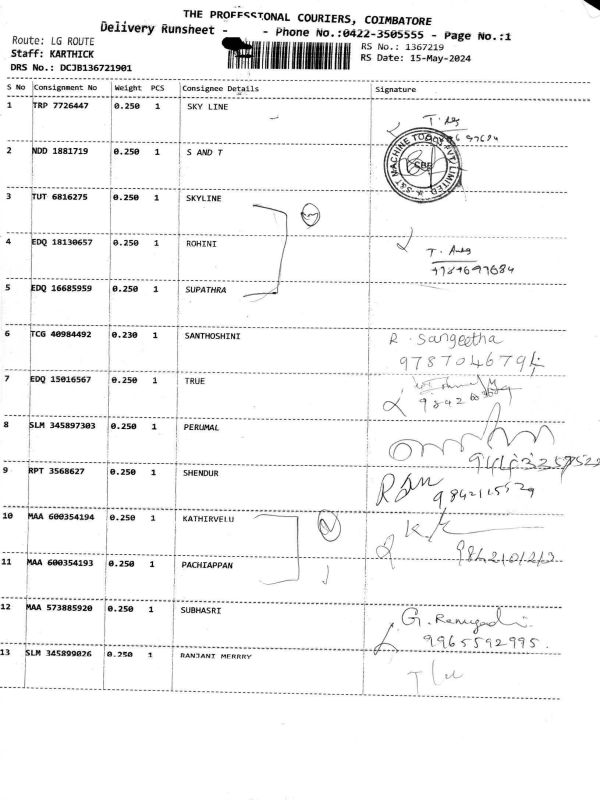 THE PROFESSIONAL COURIERS, COIMBATORE
Delivery Runsheet - - Phone No.:0422-3505555 - Page No.:1
Route: LG ROUTE
RS No.: 1367219
Staff: KARTHICK
RS Date: 15-May-2024
DRS No.: DCJB136721901
S No Consignment No Weight PCS Consignee Details Signature
1 TRP 7726447 0.250 1 SKY LINE
2 NDD 1881719 0.250 1 S AND T
S&T MACHINE TOOLS PVT LIMITED
CBE
3 TUT 6816275 0.250 1 SKYLINE
4 EDQ 18130657 0.250 1 ROHINI
5 EDQ 16685959 0.250 1 SUPATHRA
6 TCG 40984492 0.230 1 SANTHOSHINI R. Sangeetha
9787046794
7 EDQ 15016567 0.250 1 TRUE
8 SLM 345897303 0.250 1 PERUMAL
9 RPT 3568627 0.250 1 SHENDUR
10 MAA 600354194 0.250 1 KATHIRVELU
11 MAA 600354193 0.250 1 PACHIAPPAN
12 MAA 573885920 0.250 1 SUBHASRI
9965592995.
13 SLM 345899026 0.250 1 RANJANI MERRRY